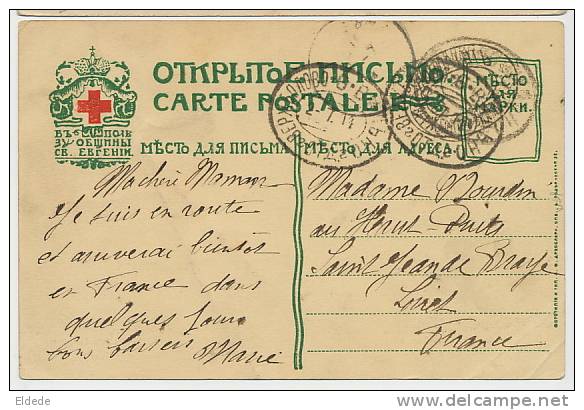 ОТКРЫТОЕ ПИСЬМО.
CARTE POSTALE
МѢСТО
ДЛЯ
МАРКИ.
ВЪ ПОЛЬ
ЗУ ОБЩИНЫ
СВ. ЕВГЕНІИ.
МѢСТО ДЛЯ ПИСЬМА
МѢСТО ДЛЯ АДРЕСА
Ma chère Maman
Je suis en route
et arriverai bientôt
en France dans
quelques jours
bons baisers
Marie
Madame Bourdin
au Haut-Puits
Saint Jean de Braye
Loiret
France
Eldede
delcampe.net